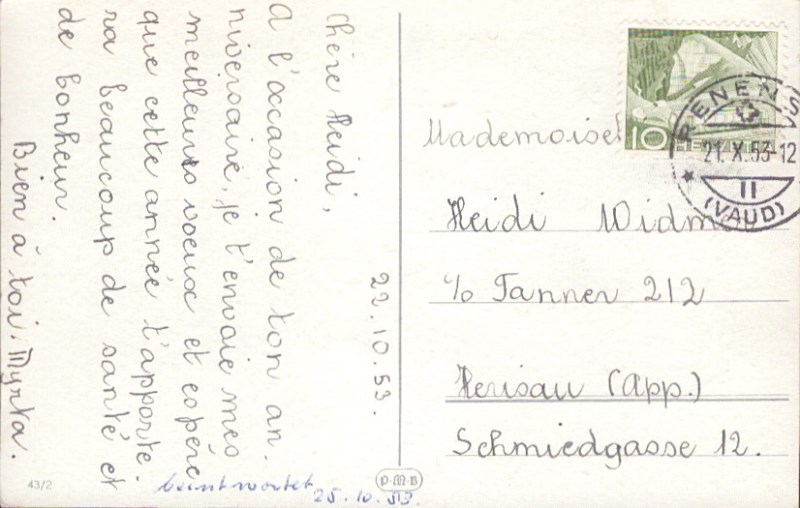 22.10.53.
Chère Heidi,
A l'occasion de ton an-
niversaire, je t'envoie mes
meilleurs voeux et espère
que cette année t'apporte-
ra beaucoup de santé et
de bonheur.
Bien à toi, Myrta.
beantwortet
25.10.53.
43/2
P·M·B
10 HELVETIA
RENENS
21.X.53-12
II
(VAUD)
Mademoisel
Heidi Widmer
c/o Tanner 212
Herisau (App.)
Schmiedgasse 12.